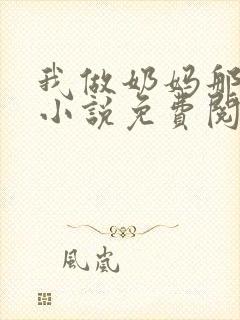 我做奶妈那
小說免費閱
風嵐